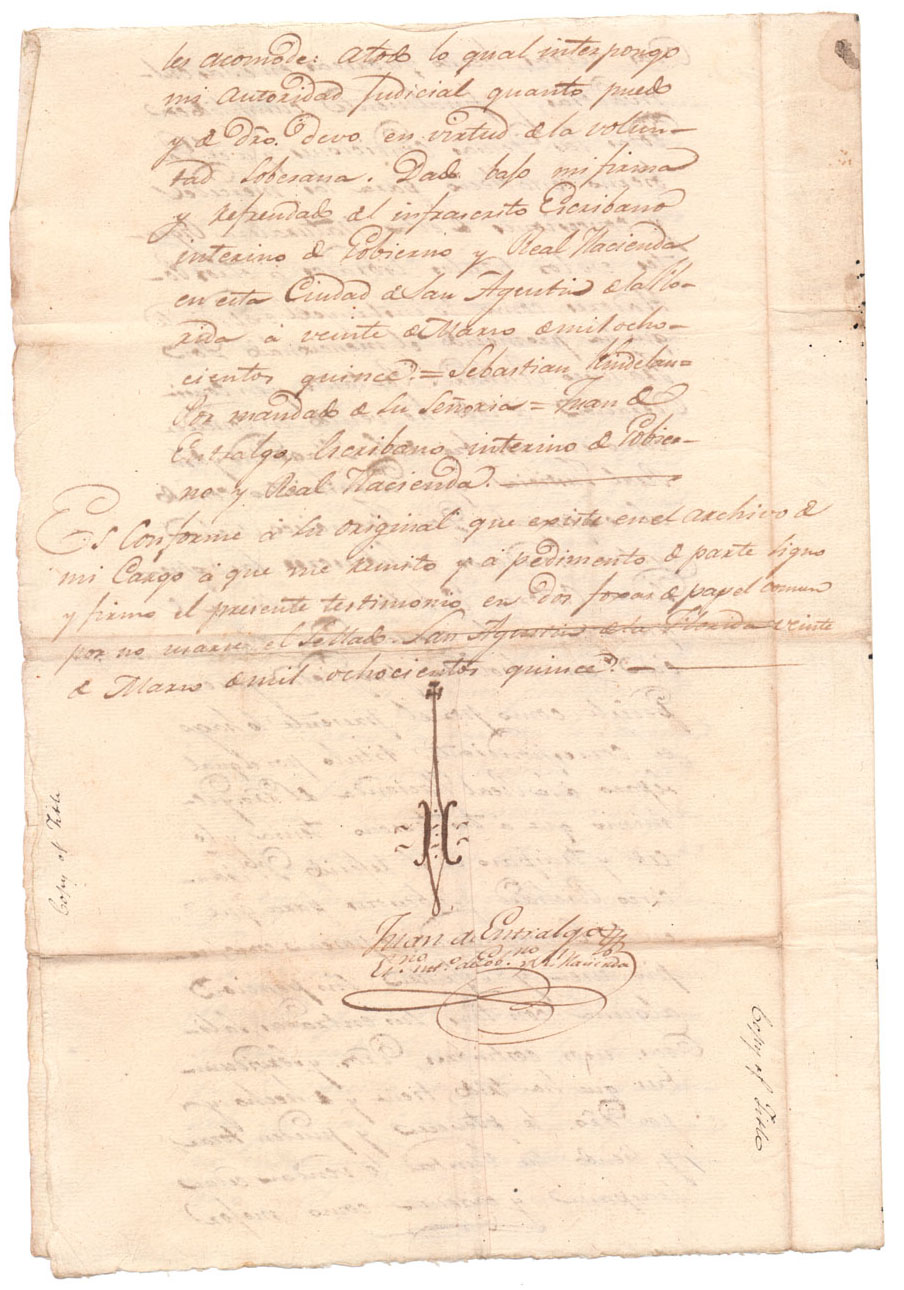 les acomode: a todo lo qual interpongo
mi autoridad Judicial quanto puedo
y de dro. devo en virtud de la volun-
tad Soberana. Dado bajo mi firma
y refrendado del infrascrito Escribano
interino de Gobierno y Real Hacienda
en esta Ciudad de San Agustin de la Flo-
rida á veinte de Marzo de mil ocho-
cientos quince. = Sebastian Kindelan =
Por mandado de su Señoria = Juan de
Entralgo, Escribano interino de Gobier-
no y Real Hacienda.
Es Conforme a su original que existe en el archivo de
mi Cargo á que me remito y á pedimento de parte signo
y firmo el presente testimonio en dos foxas de papel comun
por no usarse el Sellado. San Agustin de la Florida veinte
de Marzo de mil ochocientos quince.
Juan de Entralgo
Es.no int.o de Gob.no y Rl. Hacienda
Copy of Title
Copy of Title